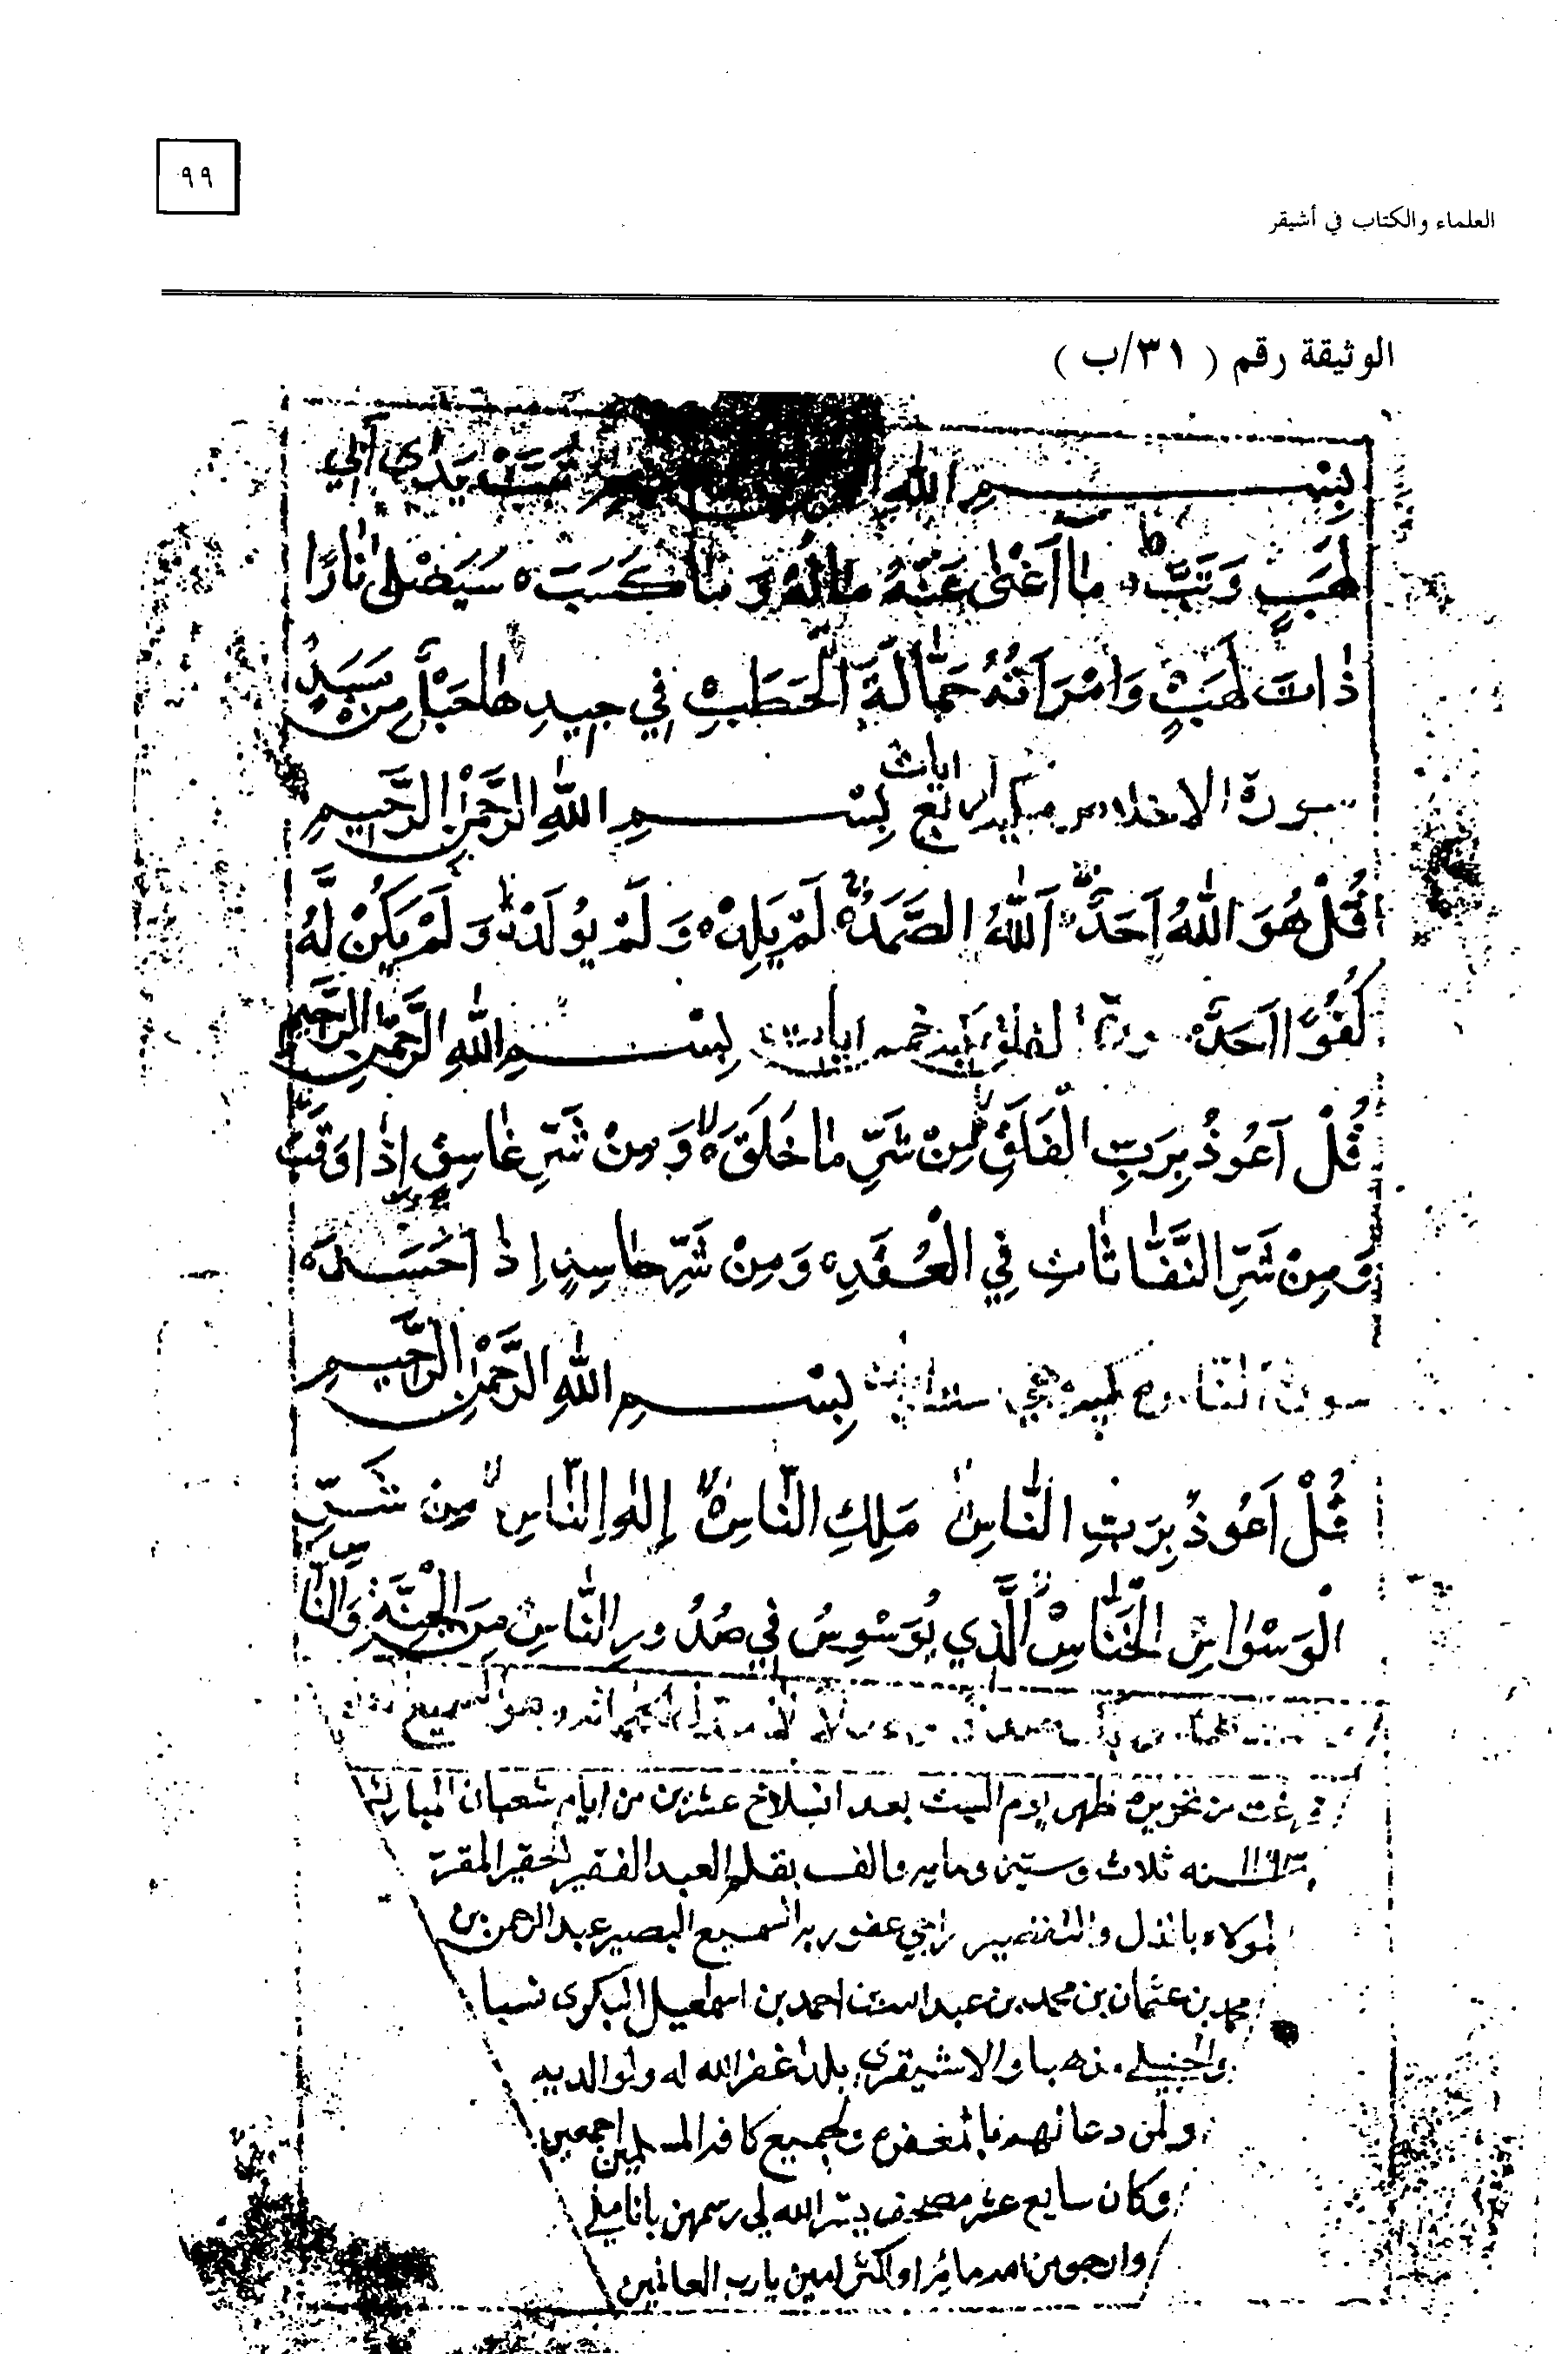 ٩٩
العلماء والكتاب في أشيقر
الوثيقة رقم ( ٣١/ب )
بِسْمِ اللهِ تَبَّتْ يَدٰا أَبِي
لَهَبٍ وَتَبَّ مٰا أَغْنٰى عَنْهُ مٰالُهُ وَمٰا كَسَبَ سَيَصْلٰى نٰارًا
ذٰاتَ لَهَبٍ وَامْرَأَتُهُ حَمّٰالَةَ الْحَطَبِ فِي جِيدِهٰا حَبْلٌ مِنْ مَسَدٍ
سورة الاخلاص مكيه اربع ايات بِسْمِ اللهِ الرَّحْمٰنِ الرَّحِيمِ
قُلْ هُوَ اللهُ اَحَدٌ اَللهُ الصَّمَدُ لَمْ يَلِدْ وَلَمْ يُولَدْ وَلَمْ يَكُنْ لَهُ
كُفُوًا اَحَدٌ سورة الفلق خمس ايات بِسْمِ اللهِ الرَّحْمٰنِ الرَّحِيمِ
قُلْ اَعُوذُ بِرَبِّ الْفَلَقِ مِنْ شَرِّ مٰا خَلَقَ وَمِنْ شَرِّ غٰاسِقٍ اِذٰا وَقَبَ
وَمِنْ شَرِّ النَّفّٰاثٰاتِ فِي الْعُقَدِ وَمِنْ شَرِّ حٰاسِدٍ اِذٰا حَسَدَ
سورة النّاس ست ايات بِسْمِ اللهِ الرَّحْمٰنِ الرَّحِيمِ
قُلْ اَعُوذُ بِرَبِّ النّٰاسِ مَلِكِ النّٰاسِ إِلٰهِ النّٰاسِ مِنْ شَرِّ
الْوَسْوٰاسِ الْخَنّٰاسِ الَّذِي يُوَسْوِسُ فِي صُدُورِ النّٰاسِ مِنَ الْجِنَّةِ وَالنّٰاسِ
وهو السميع
فرغت من تحريره ظهر يوم السبت بعد انسلاخ عشرين من ايام شعبان المبارك
١١٦٣ سنه ثلاث وستين ومايه والف بقلم العبد الفقير الحقير المقر
لمولاه بالذل والتقصير راجي عفو ربه السميع البصير عبد الرحمن بن
محمد بن عثمان بن محمد بن عبد الله بن احمد بن اسماعيل البكري نسبا
والحنبلي مذهبا والاشيقري بلدا غفر الله له ولوالديه
ولمن دعا لهم بالمغفرة ولجميع كافة المسلمين اجمعين
وكان سابع عشر مصحف يسر الله لي رسمهن باناملي
وارجو من الله مائة او اكثر امين يا رب العالمين